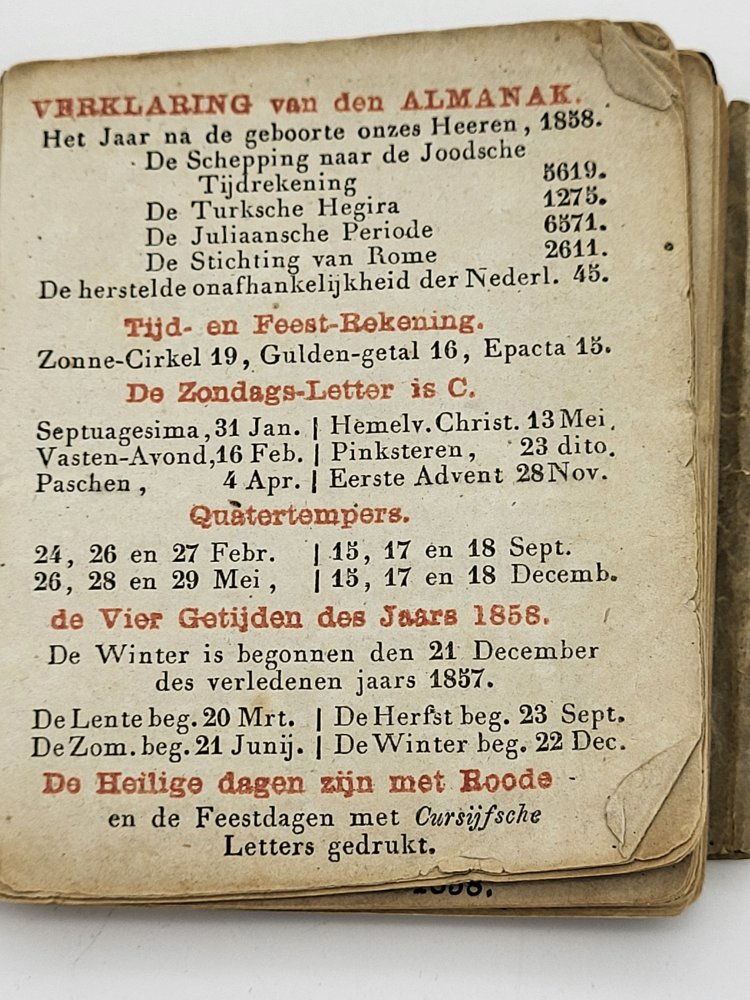 VERKLARING van den ALMANAK.
Het Jaar na de geboorte onzes Heeren, 1858.
De Schepping naar de Joodsche
Tijdrekening 5619.
De Turksche Hegira 1275.
De Juliaansche Periode 6571.
De Stichting van Rome 2611.
De herstelde onafhankelijkheid der Nederl. 45.
Tijd- en Feest-Rekening.
Zonne-Cirkel 19, Gulden-getal 16, Epacta 15.
De Zondags-Letter is C.
Septuagesima, 31 Jan. | Hemelv. Christ. 13 Mei.
Vasten-Avond, 16 Feb. | Pinksteren, 23 dito.
Paschen, 4 Apr. | Eerste Advent 28 Nov.
Quatertempers.
24, 26 en 27 Febr. | 15, 17 en 18 Sept.
26, 28 en 29 Mei, | 15, 17 en 18 Decemb.
de Vier Getijden des Jaars 1858.
De Winter is begonnen den 21 December
des verledenen jaars 1857.
De Lente beg. 20 Mrt. | De Herfst beg. 23 Sept.
De Zom. beg. 21 Junij. | De Winter beg. 22 Dec.
De Heilige dagen zijn met Roode
en de Feestdagen met Cursijfsche
Letters gedrukt.
1858.